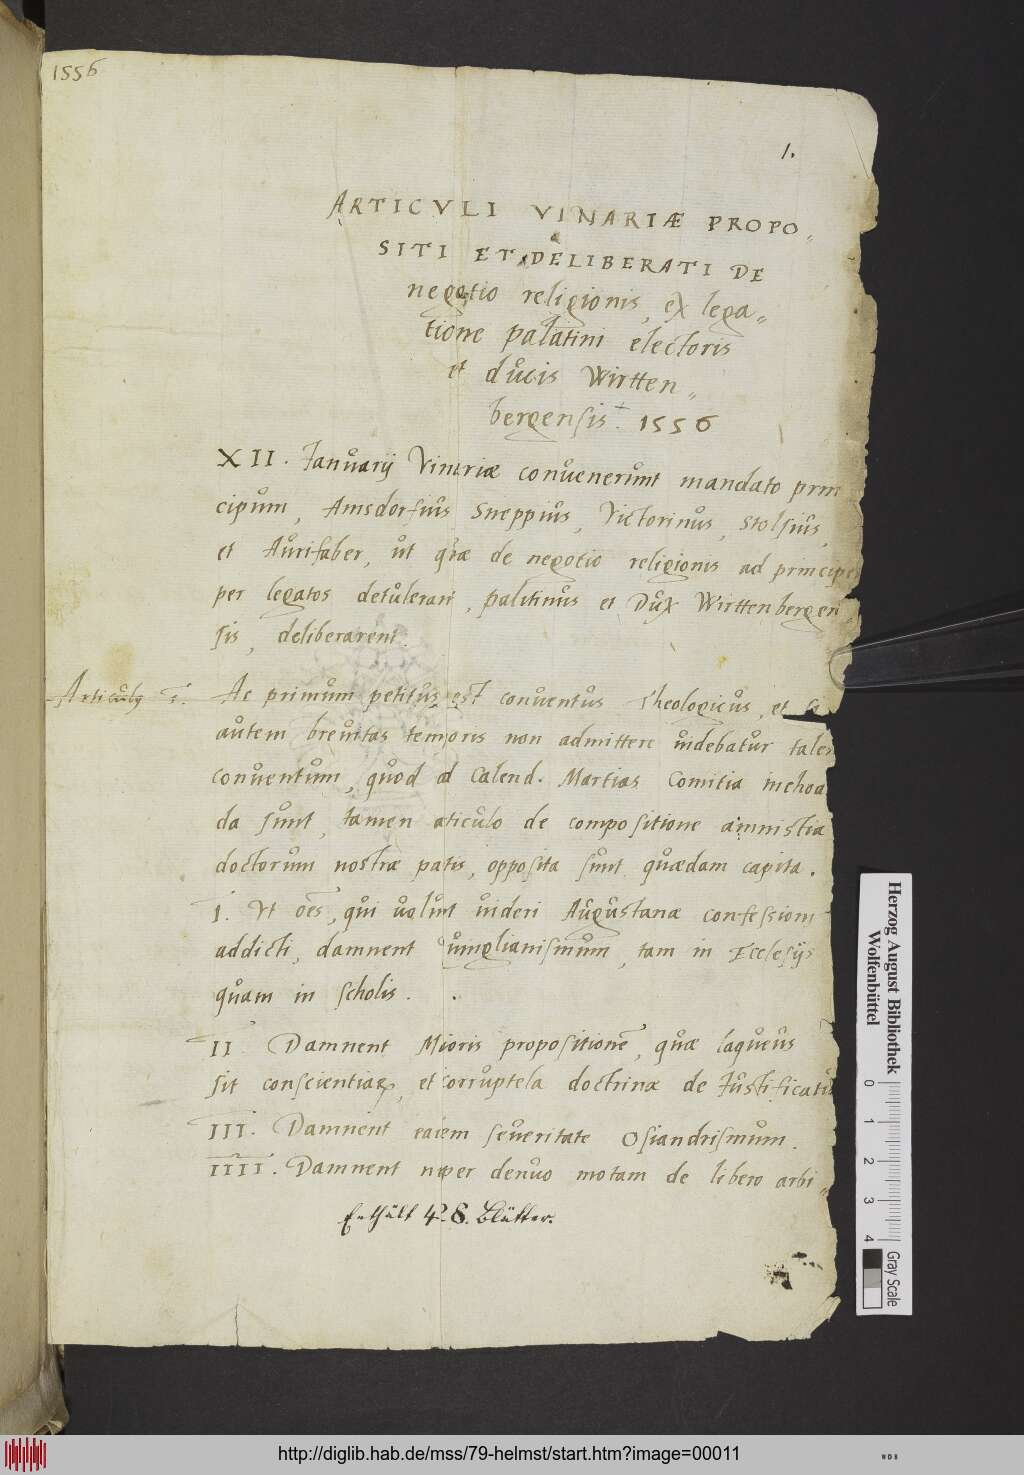 1556
1.
ARTICVLI VINARIÆ PROPO„
SITI ET DELIBERATI DE
negotio religionis, ex lega„
tione palatini electoris
et ducis Wirtten„
bergensis. 1556
XII. Januarij Vinariæ conuenerunt mandato prin
cipum, Amsdorfius Sneppius, Victorinus, Stolsius,
et Aurifaber, ut quæ de negotio religionis ad principes
per legatos detulerant, palatinus et Dux Wirttenbergen
sis, deliberarent.
Articulus 1. Ac primum petitus est conuentus Theologicus, et
autem breuitas temporis non admittere uidebatur talem
conuentum, quod ad Calend. Martias Comitia inchoan
da sunt, tamen articulo de compositione amnistia
doctorum nostræ patis, opposita sunt quædam capita.
I. Vt oēs, qui uolunt uideri Augustanæ confessioni
addicti, damnent Cinglianismum, tam in Ecclesijs
quam in scholis.
II Damnent Maioris propositionē, quæ laqueus
sit conscientiar, et corruptela doctrinæ de Justificatio
III. Damnent eadem seueritate Osiandrismum.
IIII. Damnent nuper denuo motam de libero arbi„
Enthält 48. Blätter.
Herzog August Bibliothek
Wolfenbüttel
0 1 2 3 4
Gray Scale
http://diglib.hab.de/mss/79-helmst/start.htm?image=00011
WDB